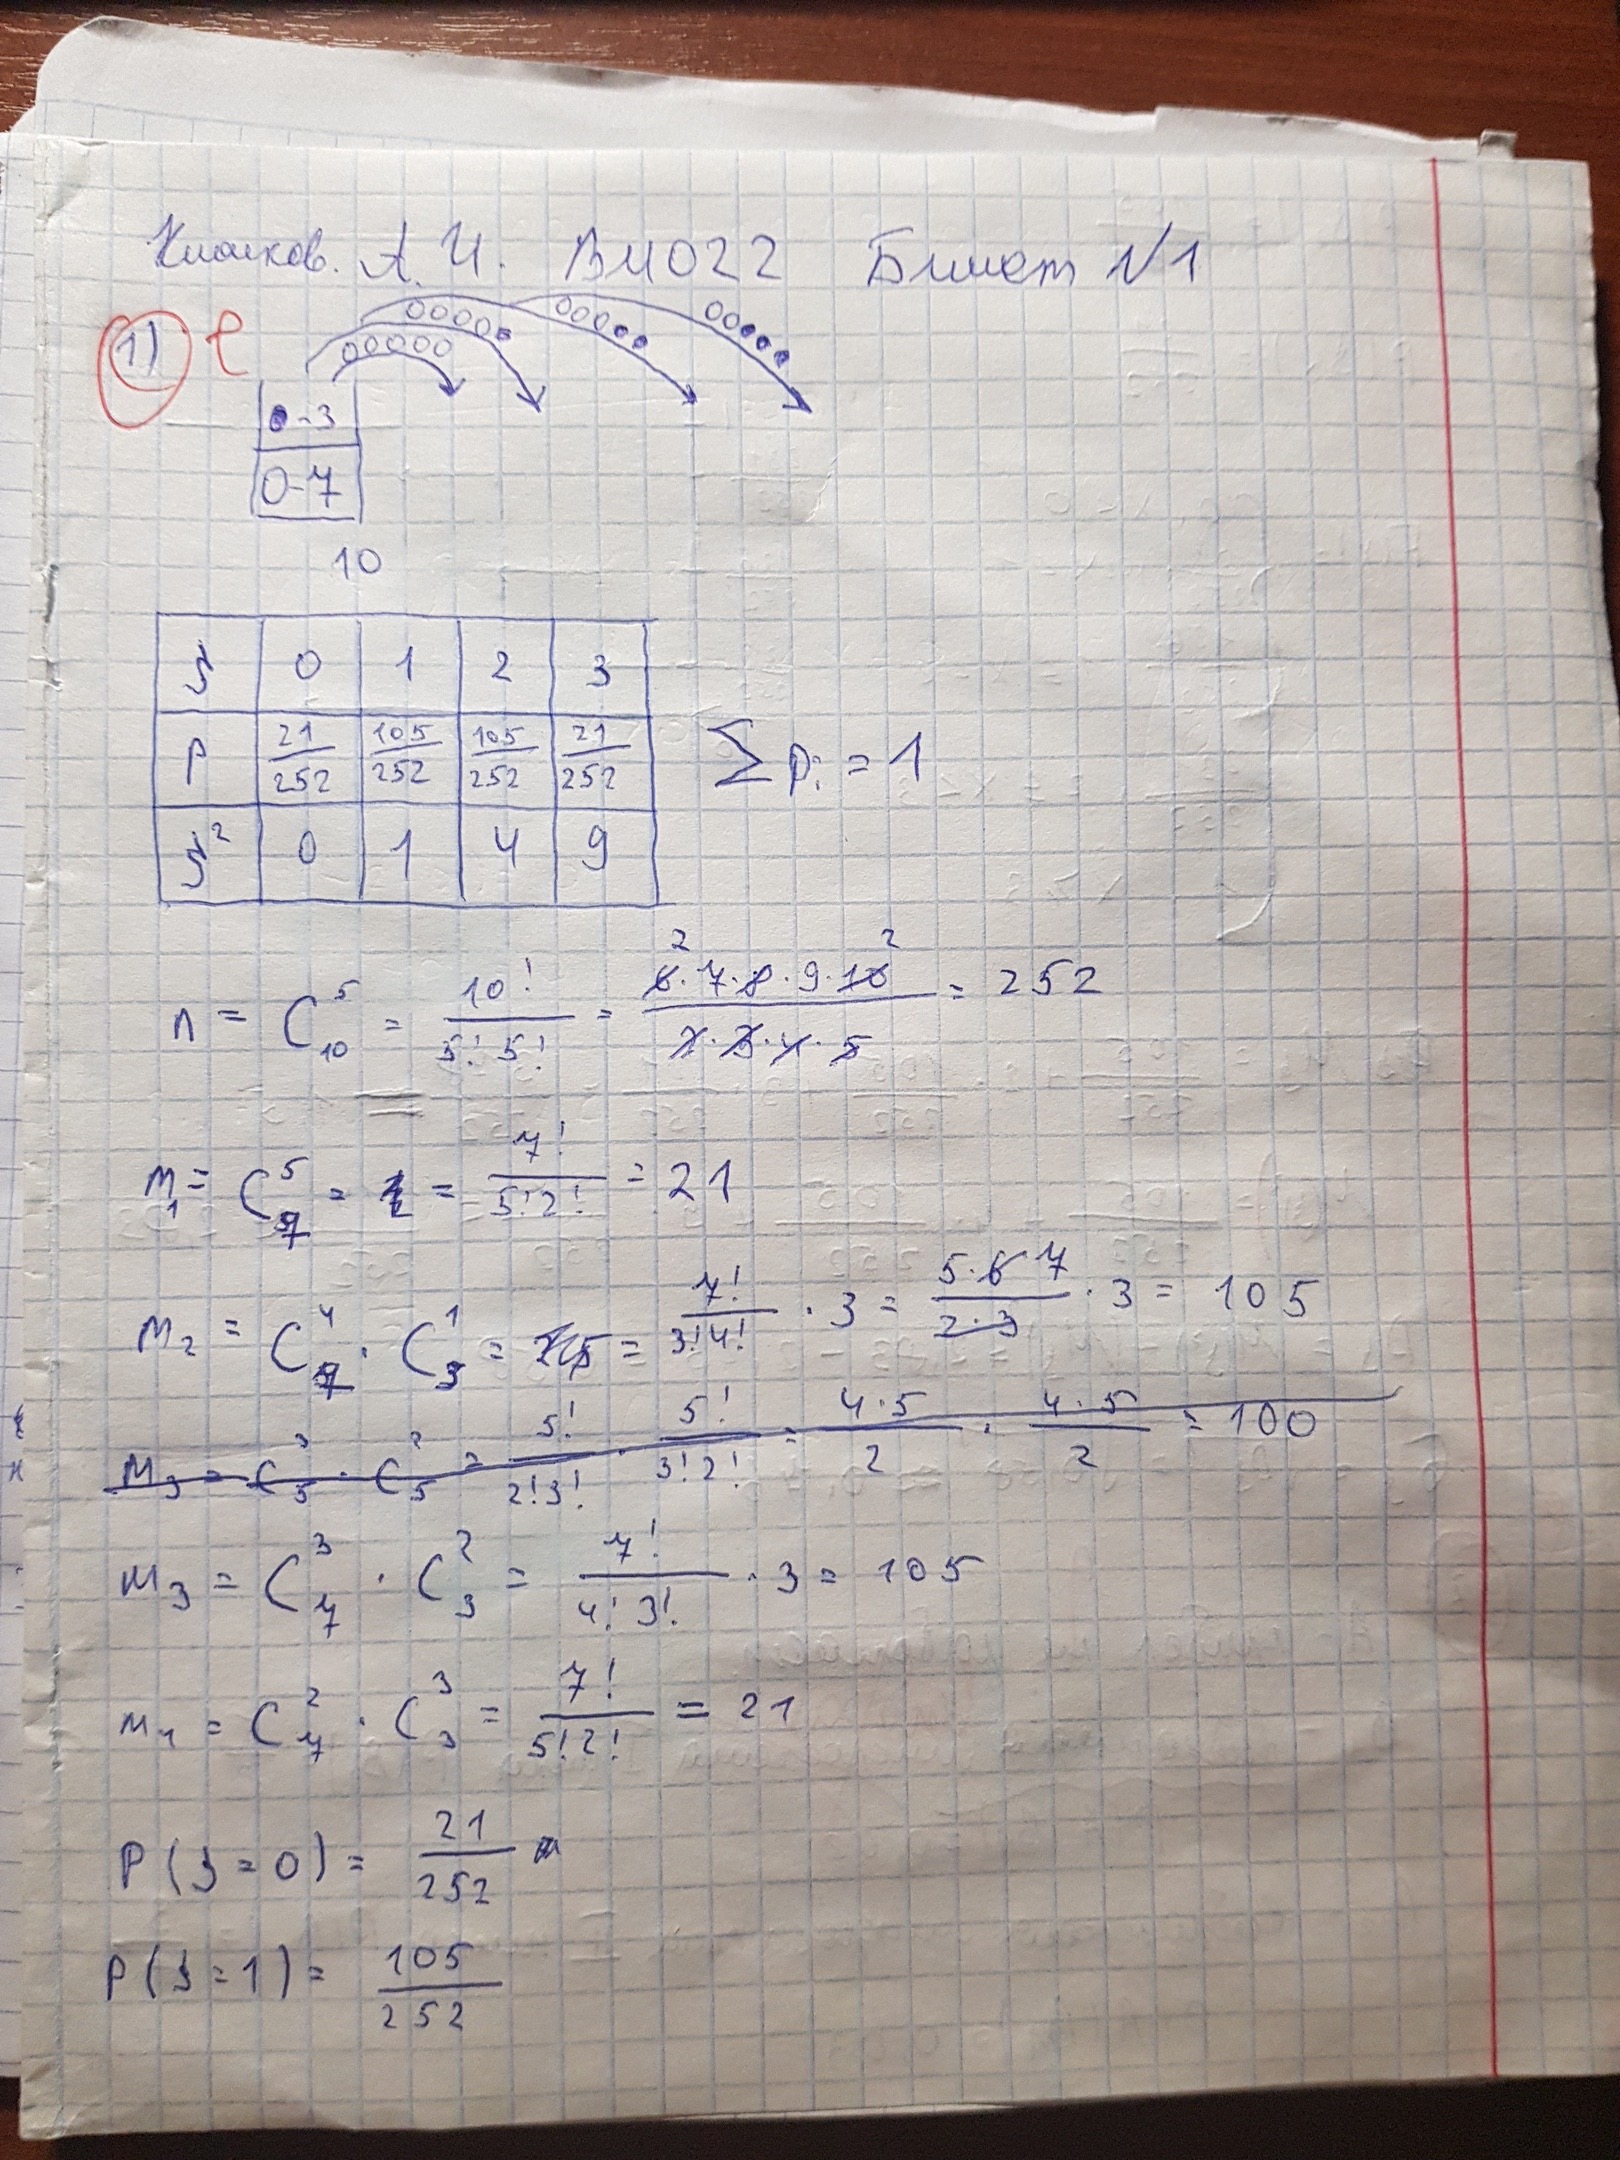 А. И. ВМ022 Билет №1
1) e
● - 3
0 - 7
10
ξ 0 1 2 3
p 21/252 105/252 105/252 21/252
ξ² 0 1 4 9
∑ pᵢ = 1
n = C₁₀⁵ = 10!/(5! 5!) = (6·7·8·9·10)/(2·3·4·5) = 252
m₁ = C₇⁵ = 7!/(5! 2!) = 21
m₂ = C₇⁴ · C₃¹ = 7!/(3! 4!) · 3 = (5·6 7)/(2·3) · 3 = 105
m₃ = C₅³ · C₅² = 5!/(2! 3!) · 5!/(3! 2!) = (4·5)/2 · (4·5)/2 = 100
m₃ = C₇³ · C₃² = 7!/(4! 3!) · 3 = 105
m₄ = C₇² · C₃³ = 7!/(5! 2!) = 21
P(ξ = 0) = 21/252
P(ξ = 1) = 105/252